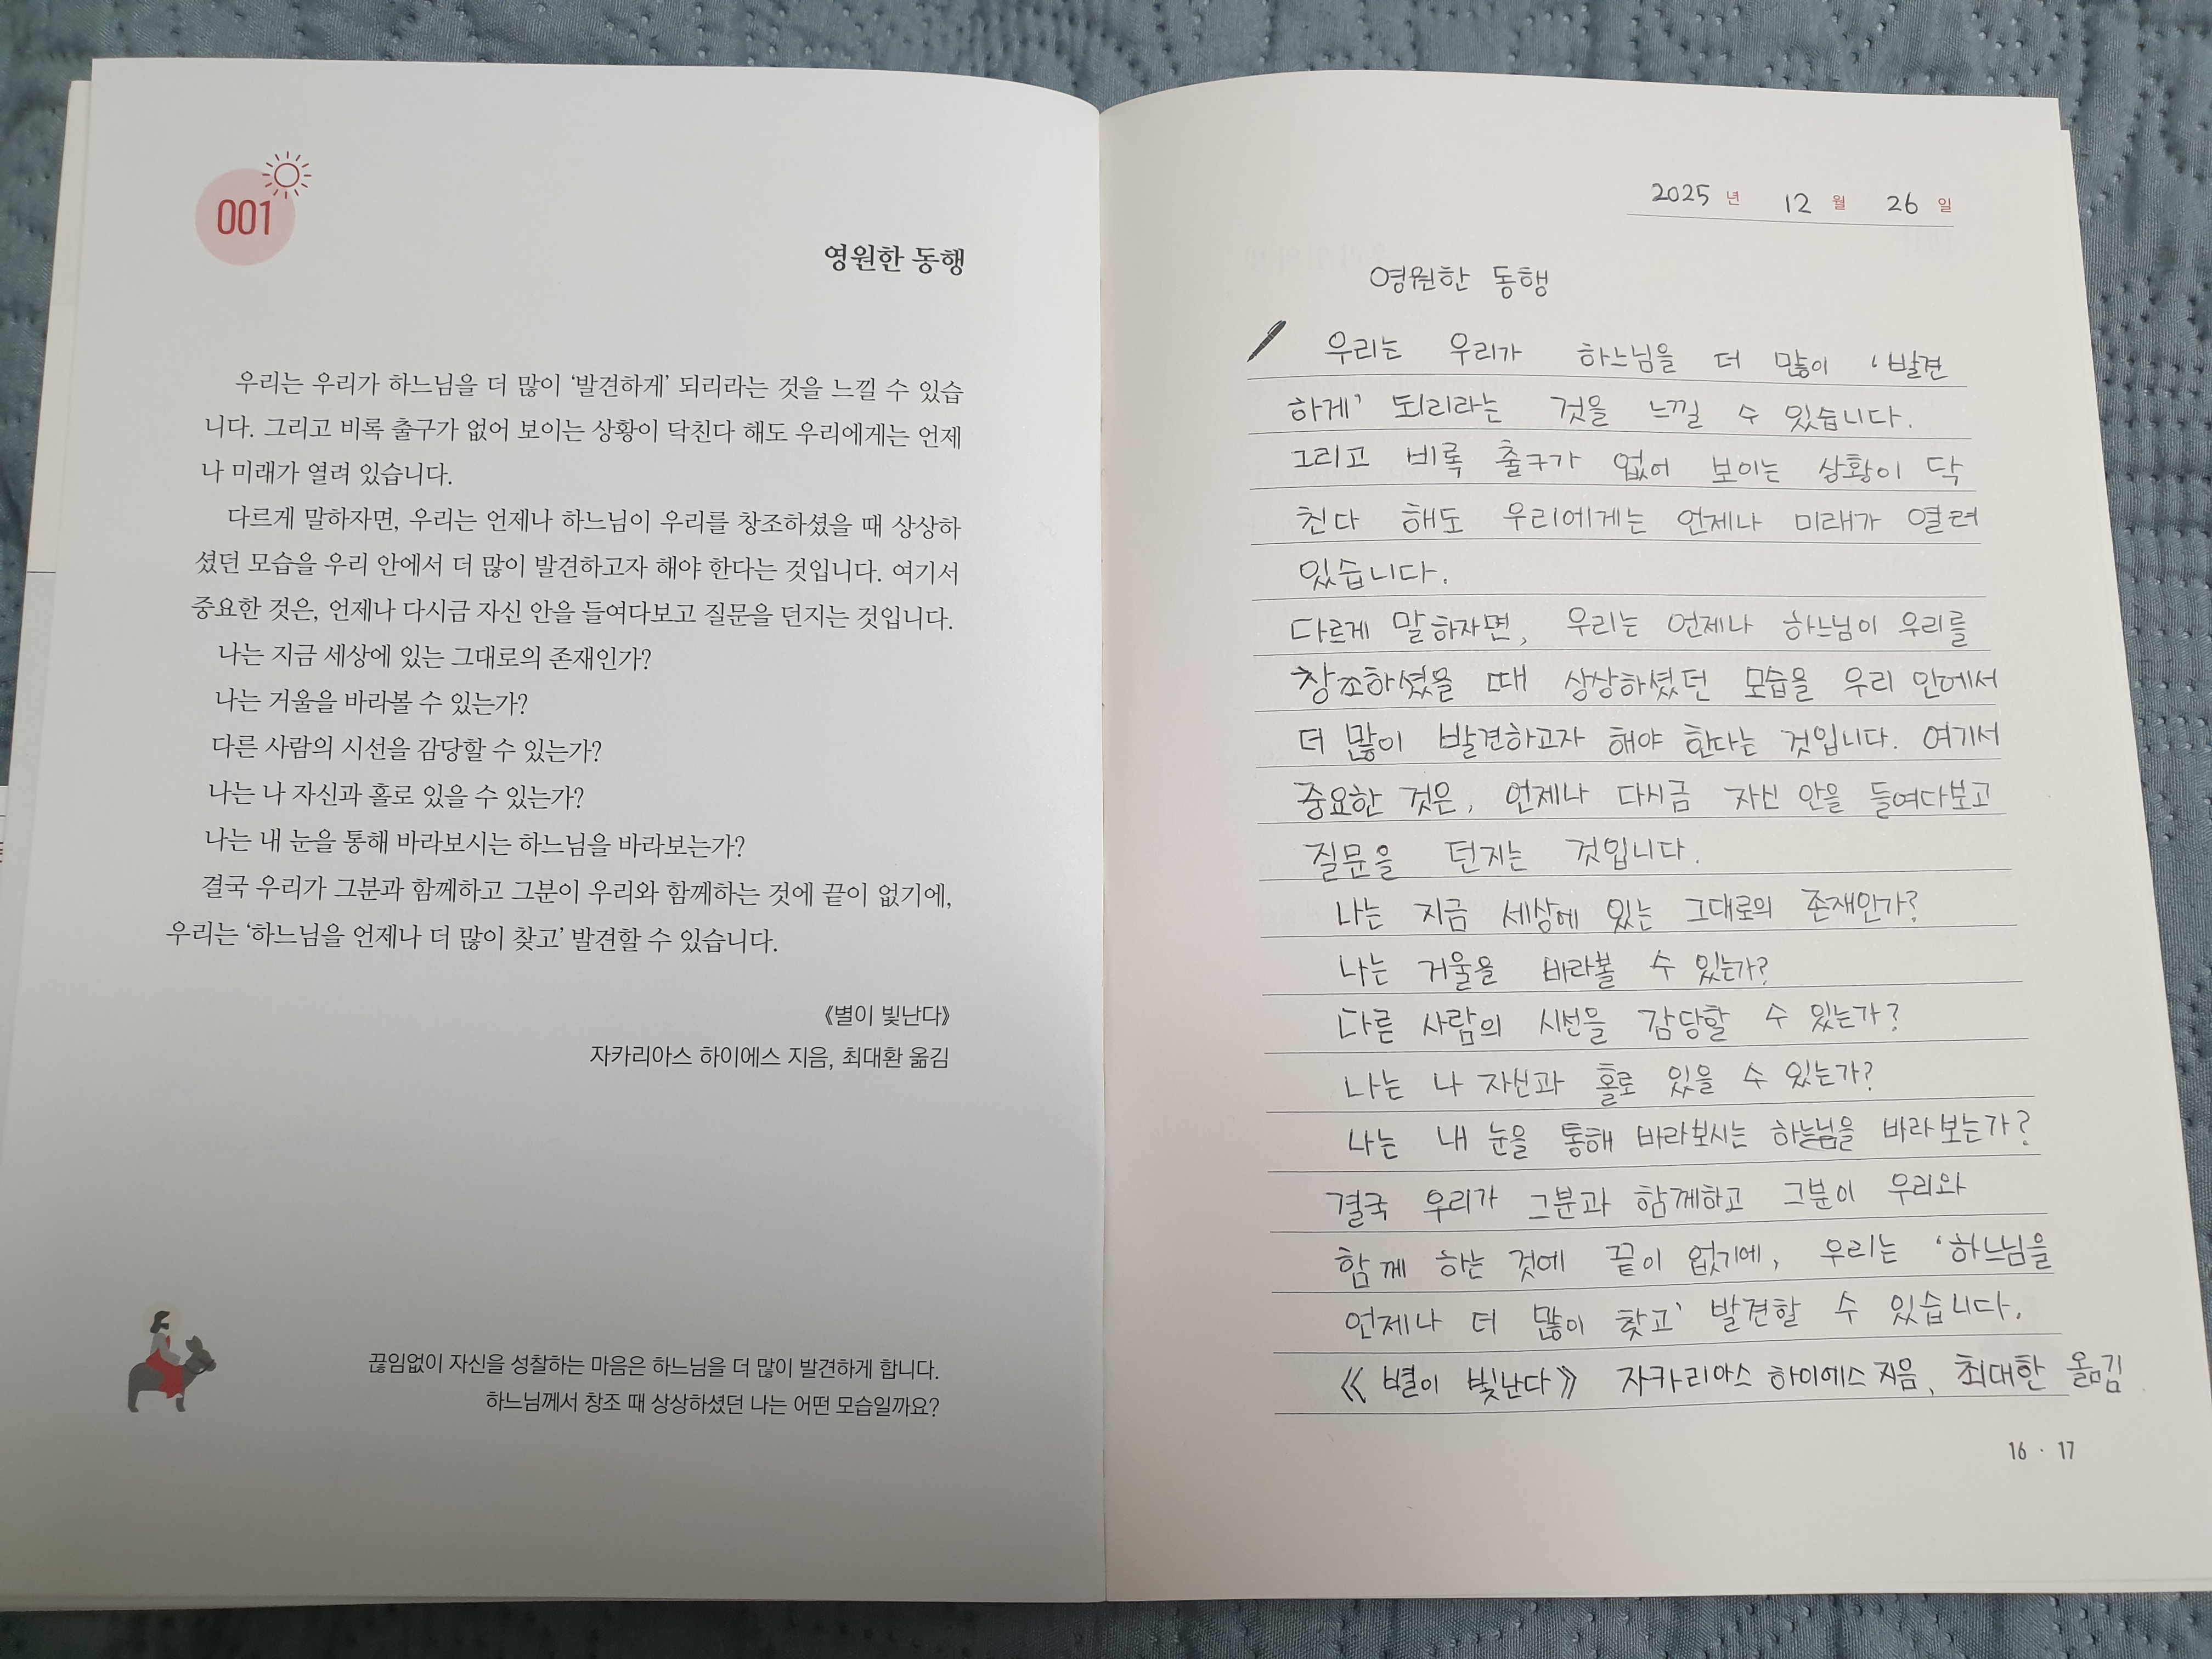 001
영원한 동행
우리는 우리가 하느님을 더 많이 ‘발견하게’ 되리라는 것을 느낄 수 있습
니다. 그리고 비록 출구가 없어 보이는 상황이 닥친다 해도 우리에게는 언제
나 미래가 열려 있습니다.
다르게 말하자면, 우리는 언제나 하느님이 우리를 창조하셨을 때 상상하
셨던 모습을 우리 안에서 더 많이 발견하고자 해야 한다는 것입니다. 여기서
중요한 것은, 언제나 다시금 자신 안을 들여다보고 질문을 던지는 것입니다.
나는 지금 세상에 있는 그대로의 존재인가?
나는 거울을 바라볼 수 있는가?
다른 사람의 시선을 감당할 수 있는가?
나는 나 자신과 홀로 있을 수 있는가?
나는 내 눈을 통해 바라보시는 하느님을 바라보는가?
결국 우리가 그분과 함께하고 그분이 우리와 함께하는 것에 끝이 없기에,
우리는 ‘하느님을 언제나 더 많이 찾고’ 발견할 수 있습니다.
《별이 빛난다》
자카리아스 하이에스 지음, 최대환 옮김
끊임없이 자신을 성찰하는 마음은 하느님을 더 많이 발견하게 합니다.
하느님께서 창조 때 상상하셨던 나는 어떤 모습일까요?
2025 년 12 월 26 일
영원한 동행
우리는 우리가 하느님을 더 많이 ‘발견
하게’ 되리라는 것을 느낄 수 있습니다.
그리고 비록 출구가 없어 보이는 상황이 닥
친다 해도 우리에게는 언제나 미래가 열려
있습니다.
다르게 말하자면, 우리는 언제나 하느님이 우리를
창조하셨을 때 상상하셨던 모습을 우리 안에서
더 많이 발견하고자 해야 한다는 것입니다. 여기서
중요한 것은, 언제나 다시금 자신 안을 들여다보고
질문을 던지는 것입니다.
나는 지금 세상에 있는 그대로의 존재인가?
나는 거울을 바라볼 수 있는가?
다른 사람의 시선을 감당할 수 있는가?
나는 나 자신과 홀로 있을 수 있는가?
나는 내 눈을 통해 바라보시는 하느님을 바라보는가?
결국 우리가 그분과 함께하고 그분이 우리와
함께 하는 것에 끝이 없기에, 우리는 ‘하느님을
언제나 더 많이 찾고’ 발견할 수 있습니다.
《별이 빛난다》 자카리아스 하이에스 지음, 최대한 옮김
16 · 17